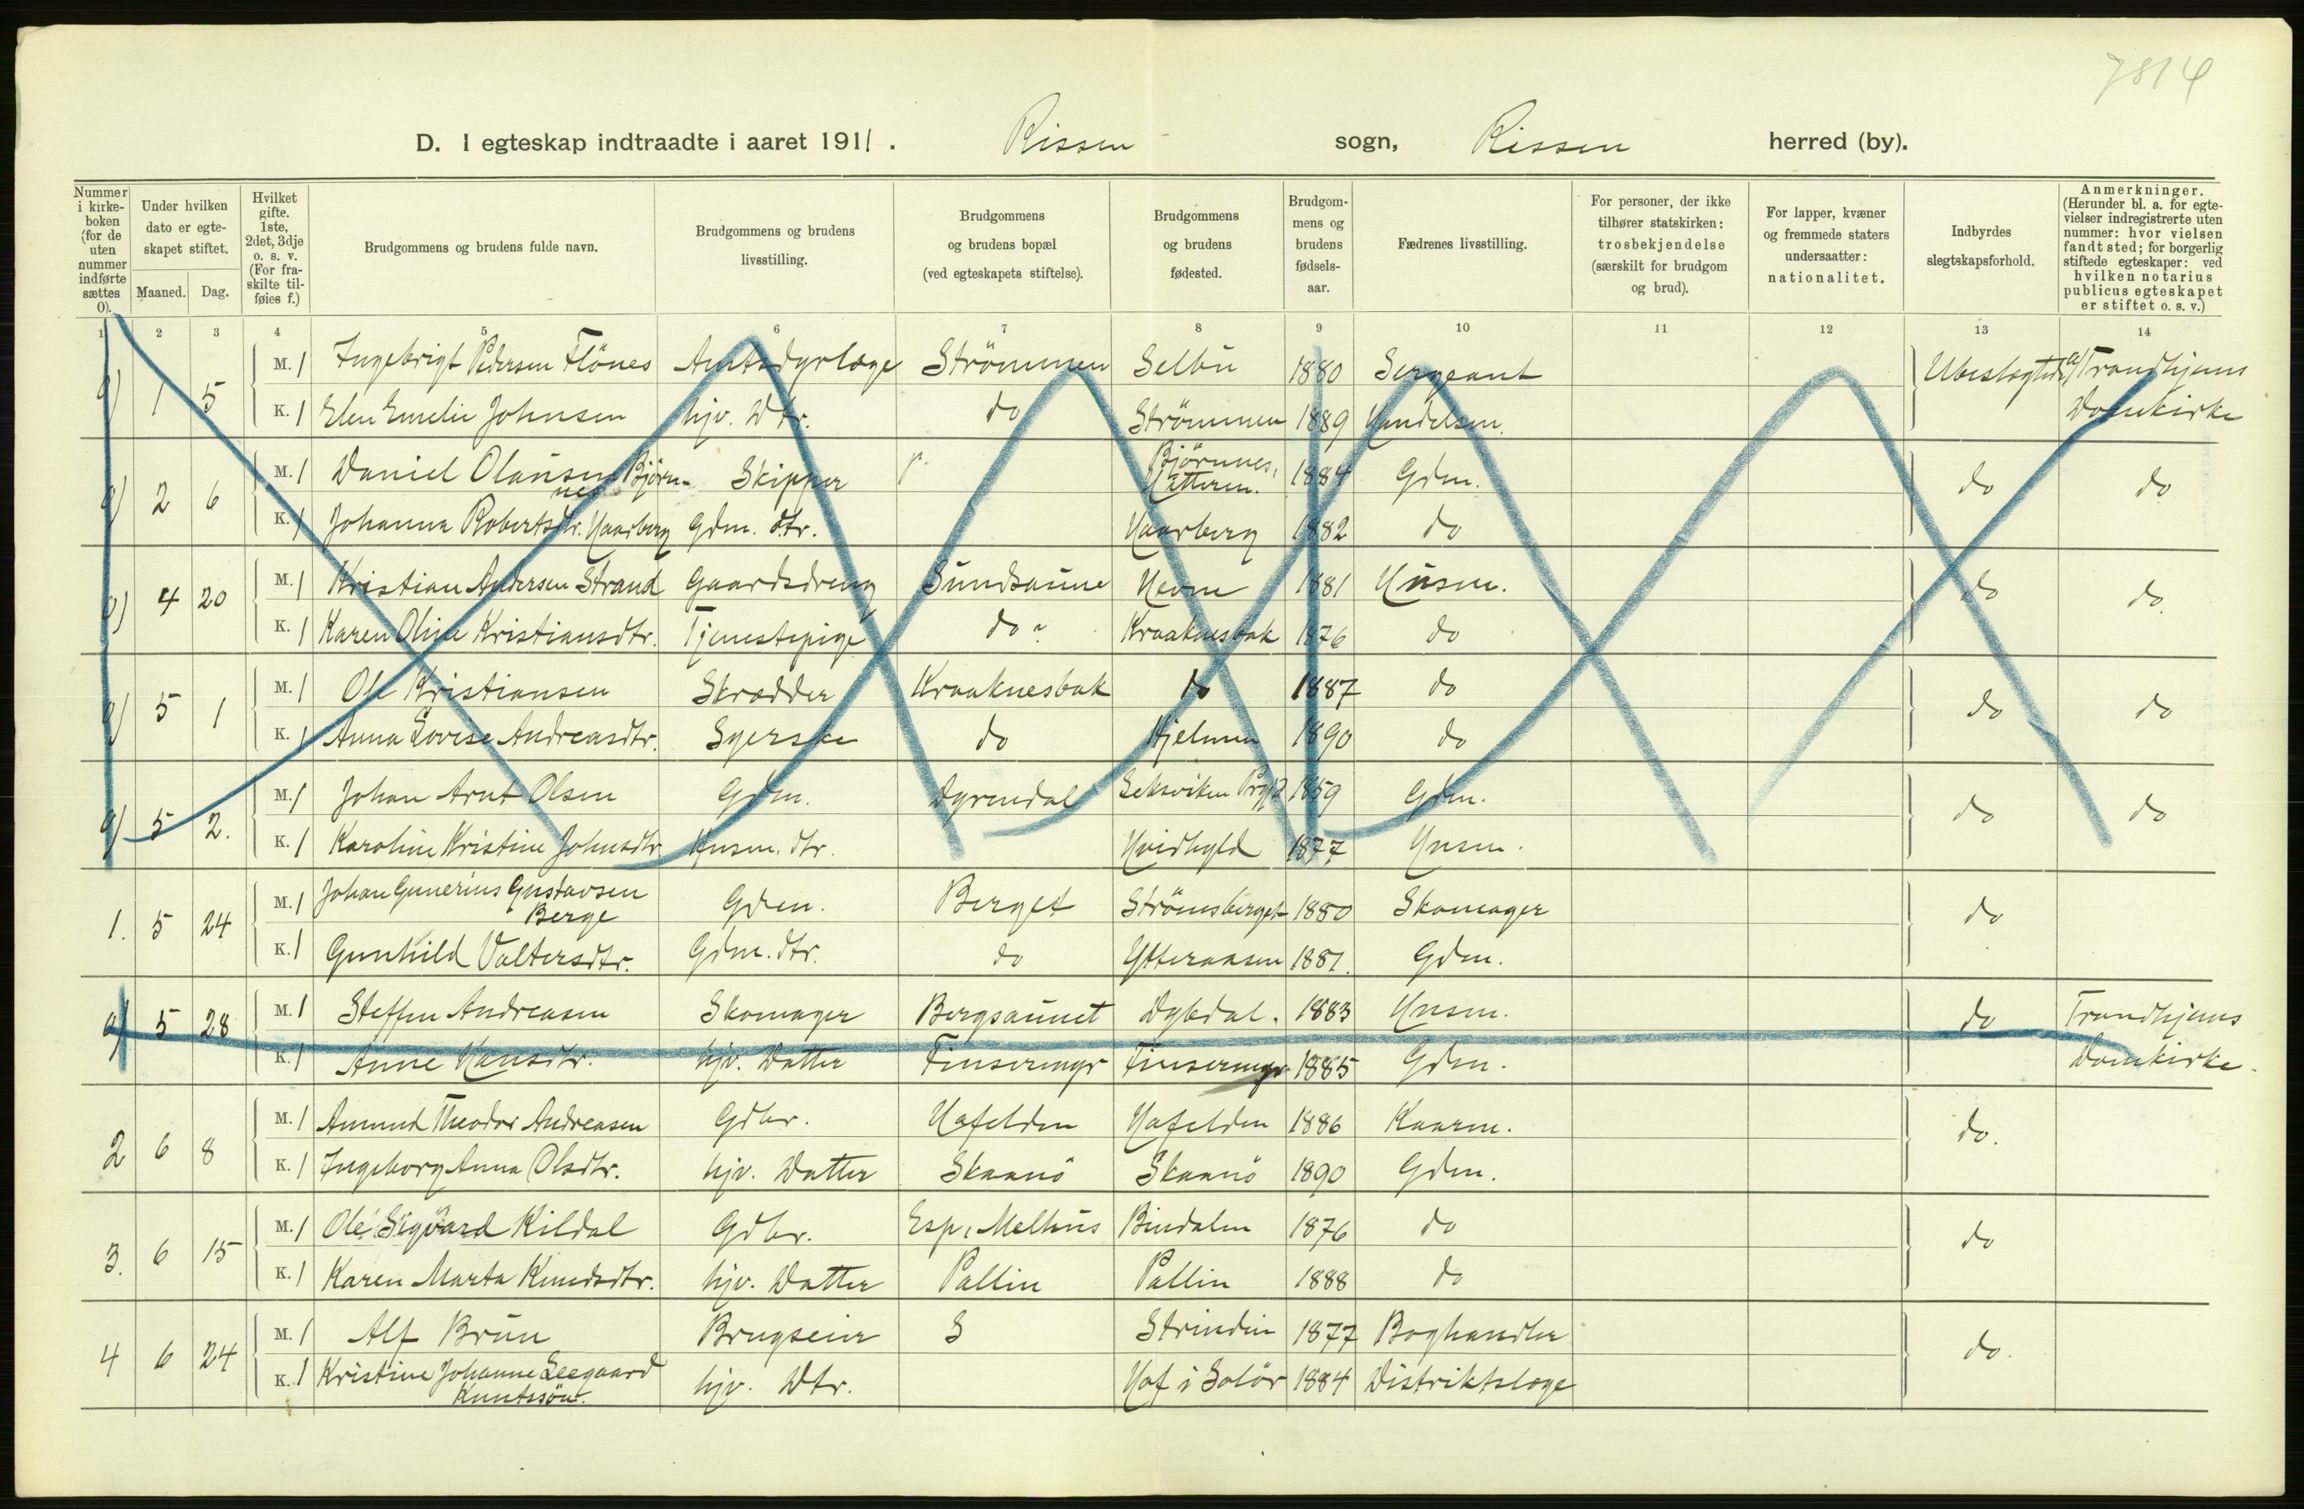 7814
D. I egteskap indtraadte i aaret 1911. Rissen sogn, Rissen herred (by).
Nummer i kirkeboken (for de uten nummer indførte sættes 0).
Under hvilken dato er egteskapet stiftet.
Maaned. Dag.
Hvilket gifte. 1ste, 2det, 3dje o. s. v. (For fraskilte tilføies f.)
Brudgommens og brudens fulde navn.
Brudgommens og brudens livsstilling.
Brudgommens og brudens bopæl (ved egteskapets stiftelse).
Brudgommens og brudens fødested.
Brudgommens og brudens fødselsaar.
Fædrenes livsstilling.
For personer, der ikke tilhører statskirken: trosbekjendelse (særskilt for brudgom og brud).
For lapper, kvæner og fremmede staters undersaatter: nationalitet.
Indbyrdes slegtskapsforhold.
Anmerkninger. (Herunder bl. a. for egtevielser indregistrerte uten nummer: hvor vielsen fandt sted; for borgerlig stiftede egteskaper: ved hvilken notarius publicus egteskapet er stiftet o. s. v.)
1 2 3 4 5 6 7 8 9 10 11 12 13 14
0) 1 5 M. 1 Ingebrigt Pedersen Flönes Amtsdyrlæge Strömmen Selbu 1880 Sergeant Ubeslegtede Trondhjems
K. 1 Elen Emelie Johnsen hjv. Dtr. do Strömmen 1889 Handelsm. Domkirke
0) 2 6 M. 1 Daniel Olausen Björnnes Skipper Björnnes, Hatteren. 1884 Gdm. do do
K. 1 Johanna Robertsdtr. Haarberg Gdm. dtr. Haarberg 1882 do
0) 4 20 M. 1 Kristian Andersen Strand Gaardsdreng Sundsaune Hevne 1881 Husm. do do.
K. 1 Karen Oline Kristiansdtr. Tjenestepige do Kraaknesbak 1876 do
0) 5 1 M. 1 Ole Kristiansen Skrædder Kraaknesbak do 1887 do do do
K. 1 Anna Lovise Andreasdtr. Syerske do Hjelmen 1890 do
0) 5 2. M. 1 Johan Arnt Olsen Gdm. Dyrendal Leksviken Prgjd 1859 Gdm. do do
K. 1 Karoline Kristine Johnsdtr Husm. dtr. Hvidhyld 1877 Husm.
1. 5 24 M. 1 Johan Gunerius Gustavsen Berge Gdm. Berget Strömsberget 1880 Skomager do
K. 1 Gunhild Valtersdtr. Gdm. dtr. do Ytteraasen 1881. Gdm.
0) 5 28 M. 1 Steffen Andreasen Skomager Bergsaunet Dybdal. 1883 Husm. do Trondhjems
K. 1 Anne Hansdtr. hjv. Datter Finsermyr Finsermyr 1885 Gdm. Domkirke.
2 6 8 M. 1 Amund Theodor Andreasen Gdbr. Hafelden Hafelden 1886 Kaarm. do.
K. 1 Ingeborg Anna Olsdtr. hjv. Datter Skaanö Skaanö 1890 Gdm.
3. 6 15 M. 1 Ole Sigvard Kildal Gdbr. Esp, Melhus Bindalen 1876 do do
K. 1 Karen Marta Knudsdtr. hjv. Datter Pallin Pallin 1888 do
4 6 24 M. 1 Alf Brun Brugseier S Strinden 1877 Boghandler do.
K. 1 Kristine Johanne Leegaard Knutssön. hjv. Dtr. Hof i Solör 1884 Distriktslæge